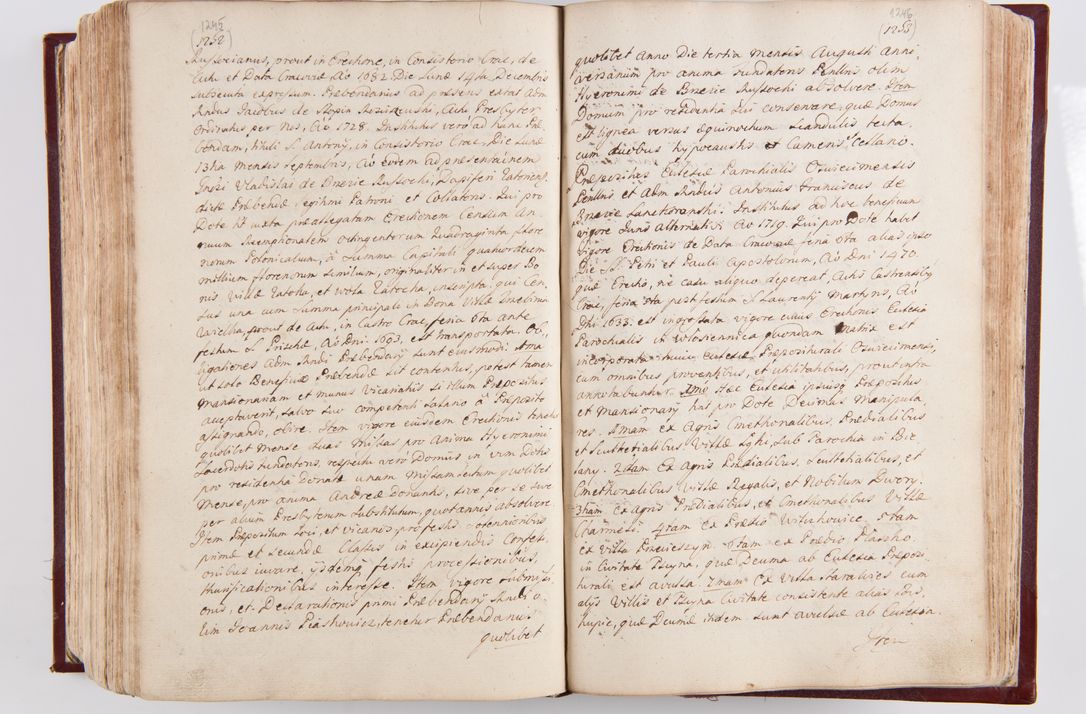 1245
(1252)
Russocianus, prout in Erectione, in Consistorio Crac, de
Actu et Data Cracoviæ Ao 1682 Die Lunæ 14ta Decembris
subsecuta expressum. Præbendarius ad præsens extat Adm
Rndus Jacobus de Slopia Presbyter
Ordinatus per Nos, Ao 1728. Institutus vero ad hanc Præ
bendam, tituli S. Antonÿ, in Consistorio Crac, Die Lunæ
13tia Mensis Septembris, Ao eodem ad præsentationem
Gnsi Vladislai de Brzezie Russocki, Dapiferi Zatoriens
dictæ Præbendæ legitimi Patroni et Collatoris. Qui pro
Dote ht iuxta præallegatam Erectionem Censum An
nuum Reemptionalem octingentorum Quadraginta flore
norum Polonicalium, a Summa Capitali quatuordecim
millium florenorum similium, originaliter in et super Bo
nis Villæ Zatoka, et Wola Zatocka, inscripta. qui Cen
sus una cum Summa principali in Bona Villæ
prout de Actu, in Castro Crac, feria 6ta ante
festum S. Priscæ, Ao Dni. 1693, est transportata. Ob,
ligationes Adm Rndi Præbendarÿ sunt eiusmodi. Ima
ut solo Beneficio Præbendæ sit contentus, potest tamen
Mansionariam et munus Vicariatus si illum Præpositus
acceptaverit, salvo suo competenti Salario a Præposito
assignando, obire. Item vigore eiusdem Erectionis tenetur
quolibet mense duas Missas pro Anima Hyeronimi
Sacerdotis fundatoris, respectu vero Domus in vim Dotis
pro residentia Donatæ unam Missam lectam quolibet
Mense, pro anima Andreæ donantis, sive per se sive
per alium Presbyterum Substitutum, quotannis absolvere.
Item Præpositum Loci, et Vicarios, pro festis Solennioribus
primæ et secundæ Classis in excipiendis Confessi,
onibus iuvare, ijsdemq festis processionibus,
thurificationibus interesse. Item vigore submissi,
onis, et Declarationis primi Præbendarÿ Rndi o,
lim Joannis Piaskowicz, tenetur Præbendarius
quolibet
1246
(1253)
quolibet Anno Die tertia mensis Augusti Anni,
versarium pro anima fundatoris Penttris olim
Hyeronimi de Brzezie Russocki absolvere. Item
Domum pro residentia sui conservare, quæ Domus
est lignea versus æquinoctium Scandulis tecta
cum duobus hypocaustis et Cameris, Cellario.
Præpositus Ecclesiæ Parochialis Osiecimensis
Penttris et Adm Rndus Antonius Franciscus de
Brzezie Lanckoroński. Institutus ad hoc benefium
vigore Juris alternativi Ao 1719. Qui pro Dote habet
vigore Erectionis de Data Cracoviæ feria 6ta alias ipso
Die S.S. Petri et Pauli Apostolorum, Ao Dni 1470.
quæ Erectio, ne casu aliquo depereat Actis Castrensibg
Crac, feria 6ta post festum S. Laurentÿ Martyris, Ao
Dni 1633. est ingrossata vigore cuius Erectionis Ecclesia
Parochialis in Włosiennica quondam Matrix est
incorporata huic Ecclesiæ Præpositurali Osiecimensi,
cum omnibus proventibus, et utilitatibus, prout infra
annotabuntur. Imo Hæc Ecclesia ipsiusq Præpositus
et Mansionarÿ hat pro Dote Decimas Manipula,
res. Imam ex Agris Cmethonalibus, Prædialibus
et Scultetialibus Villæ Łęki, sub Parochia in Bie,
lany. 2dam Ex Agris Prædialibus, Scultetialibus, et
Cmethonalibus Villæ Regalis, et Nobilium Dwory.
3tiam ex Agris Prædialibus, et Cmethonalibus Villæ
Charmęzi. 4tam Ex Prædio Wituchowice 5tam
ex Villa Brzeszczyn. 6tam ex Prædio Plasko.
in Civitate Pszyna, quæ Decuma ab Ecclesia Præposi
turali est avulsa. 7mam Ex Villa Starawies cum
alÿs Villis et Pszyna Civitate consistente alias
quæ Decumæ itidem sunt avulsæ ab Ecclesia.
Item